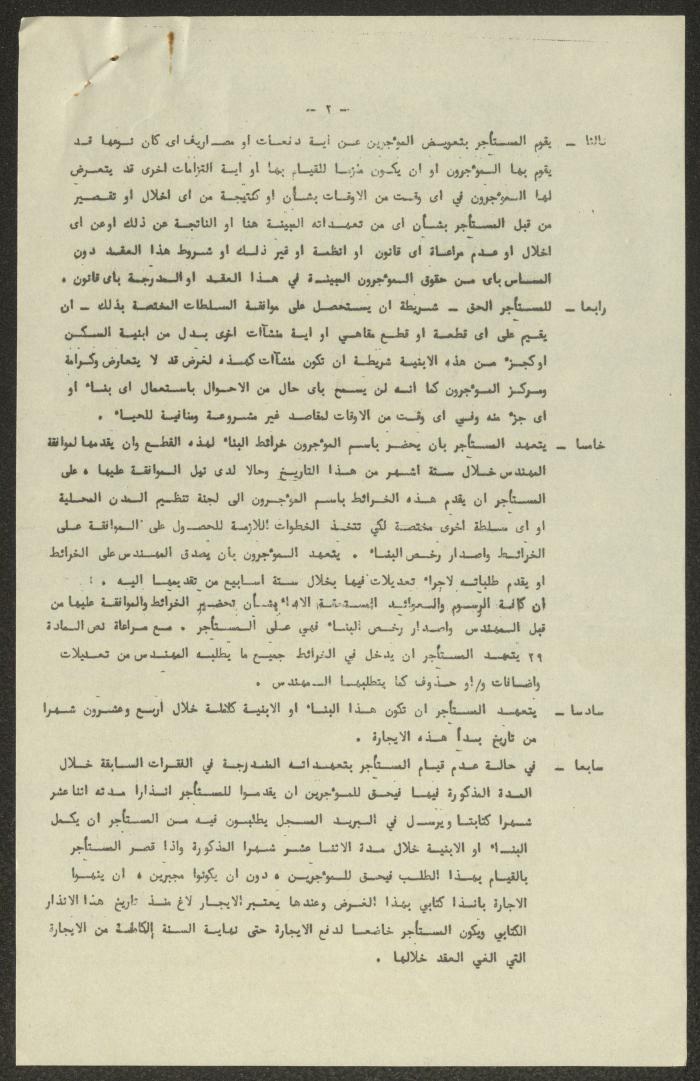 - ٢ -
ثالثا - يقوم المستأجر بتعويض المؤجرين عن اية دفعات او مصاريف اى كان نوعها قد
يقوم بها المؤجرون او ان يكون ملزما للقيام بها او اية التزامات اخرى قد يتعرض
لها المؤجرون في اى وقت من الاوقات بشأن او كنتيجة من اى اخلال او تقصير
من قبل المستأجر بشأن اى من تعهداته المبينة هنا او الناتجة عن ذلك اوعن اى
اخلال او عدم مراعاة اى قانون او انظمة او غير ذلك او شروط هذا العقد دون
المساس باى من حقوق المؤجرون المبينة في هذا العقد او المدرجة باى قانون .
رابعا - للمستأجر الحق - شريطة ان يستحصل على موافقة السلطات المختصة بذلك - ان
يقيم على اى قطعة او قطع مقاهي او اية منشآات اخرى بدل من ابنية السكن
اوكجزء من هذه الابنية شريطة ان تكون منشآات كهذه لغرض قد لا يتعارض وكرامة
ومركز المؤجرون كما انه لن يسمح باى حال من الاحوال باستعمال اى بناء او
اى جزء منه وفي اى وقت من الاوقات لمقاصد غير مشروعة ومنافية للحياء .
خامسا - يتعهد المستأجر بان يحضر باسم المؤجرون خرائط البناء لهذه القطع وان يقدمها لموافقة
المهندس خلال ستة اشهر من هذا التاريخ وحالا لدى نيل الموافقة عليها ، على
المستأجر ان يقدم هذه الخرائط باسم المؤجرون الى لجنة تنظيم المدن المحلية
او اى سلطة اخرى مختصة لكي تتخذ الخطوات اللازمة للحصول على الموافقة على
الخرائط واصدار رخص البناء . يتعهد المؤجرون بان يصدق المهندس على الخرائط
او يقدم طلباته لاجراء تعديلات فيها بخلال ستة اسابيع من تقديمها اليه . :
ان كافة الرسوم والعوائد المستحقة الاداء بشأن تحضير الخرائط والموافقة عليها من
قبل المهندس واصدار رخص البناء فهي على المستأجر . مع مراعاة نص المادة
٢٩ يتعهد المستأجر ان يدخل في الخرائط جميع ما يطلبه المهندس من تعديلات
واضافات و/او حذوف كما يتطلبها المهندس .
سادسا - يتعهد المستأجر ان تكون هذا البناء او الابنية كاملة خلال أربع وعشرون شهرا
من تاريخ بدأ هذه الايجارة .
سابعا - في حالة عدم قيام المستأجر بتعهداته المندرجة في الفقرات السابقة خلال
المدة المذكورة فيها فيحق للمؤجرين ان يقدموا للمستأجر انذارا مدته اثنا عشر
شهرا كتابتا ويرسل في البريد المسجل يطلبون فيه من المستأجر ان يكمل
البناء او الابنية خلال مدة الاثنا عشر شهرا المذكورة واذا قصر المستأجر
بالقيام بهذا الطلب فيحق للمؤجرين ، دون ان يكونوا مجبرين ، ان ينهوا
الاجارة بانذا كتابي بهذا الغرض وعندها يعتبر الايجار لاغ منذ تاريخ هذا الانذار
الكتابي ويكون المستأجر خاضعا لدفع الايجارة حتى نهاية السنة الكاملة من الايجارة
التي الغي العقد خلالها .